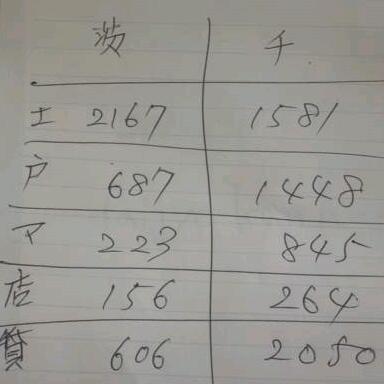 波 千
土 2167 1581
戸 687 1448
マ 223 845
店 156 264
貸 606 2050